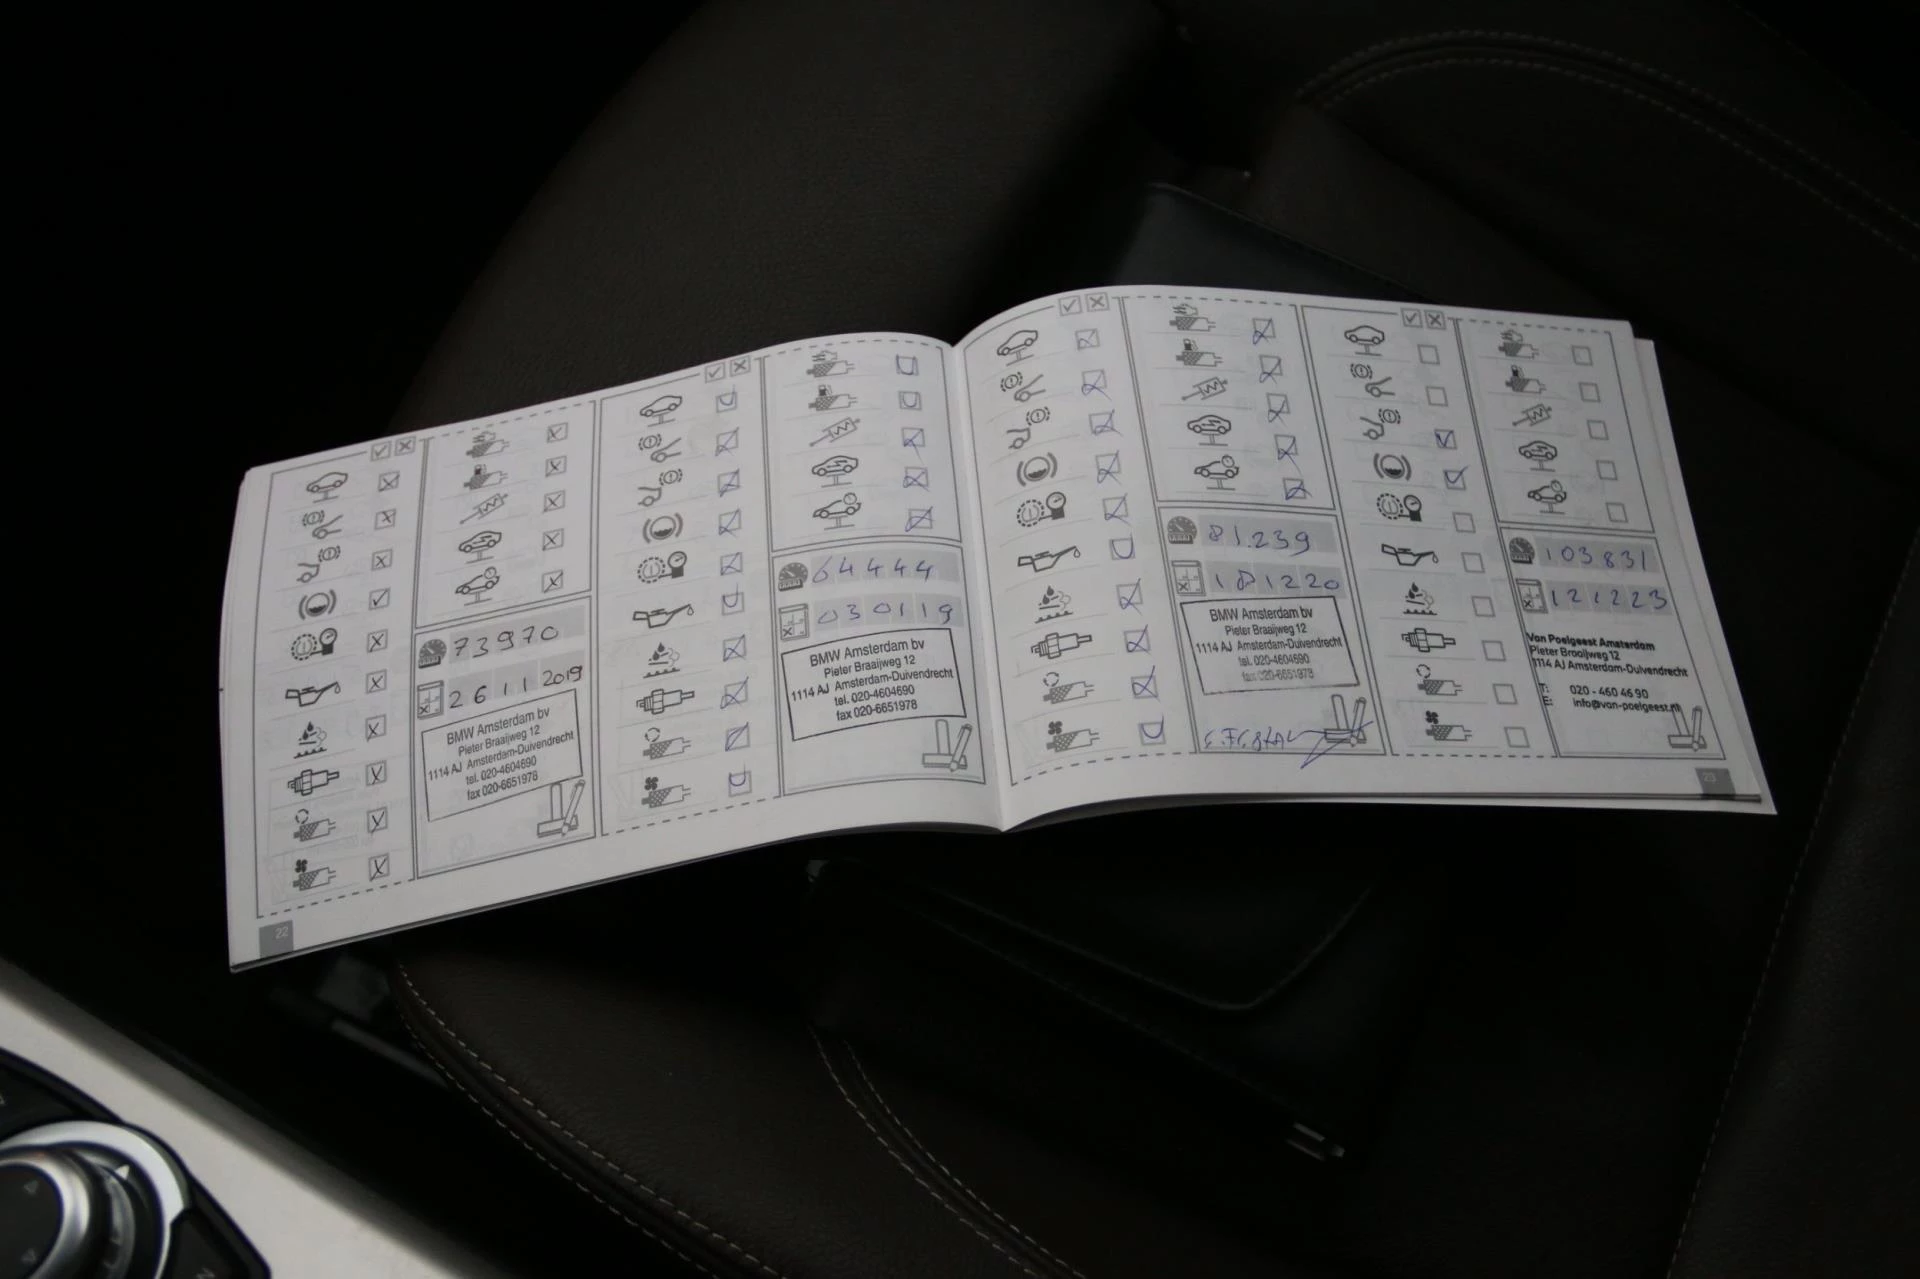 73970
26 11 2019
BMW Amsterdam bv
Pieter Braaijweg 12
1114 AJ Amsterdam-Duivendrecht
tel. 020-4604690
fax 020-6651978
22
64444
030119
BMW Amsterdam bv
Pieter Braaijweg 12
1114 AJ Amsterdam-Duivendrecht
tel. 020-4604690
fax 020-6651978
81.239
181220
BMW Amsterdam bv
Pieter Braaijweg 12
1114 AJ Amsterdam-Duivendrecht
tel. 020-4604690
fax 020-6651978
103831
121223
Van Poelgeest Amsterdam
Pieter Braaijweg 12
1114 AJ Amsterdam-Duivendrecht
T: 020 - 460 46 90
E: info@van-poelgeest.nl
23